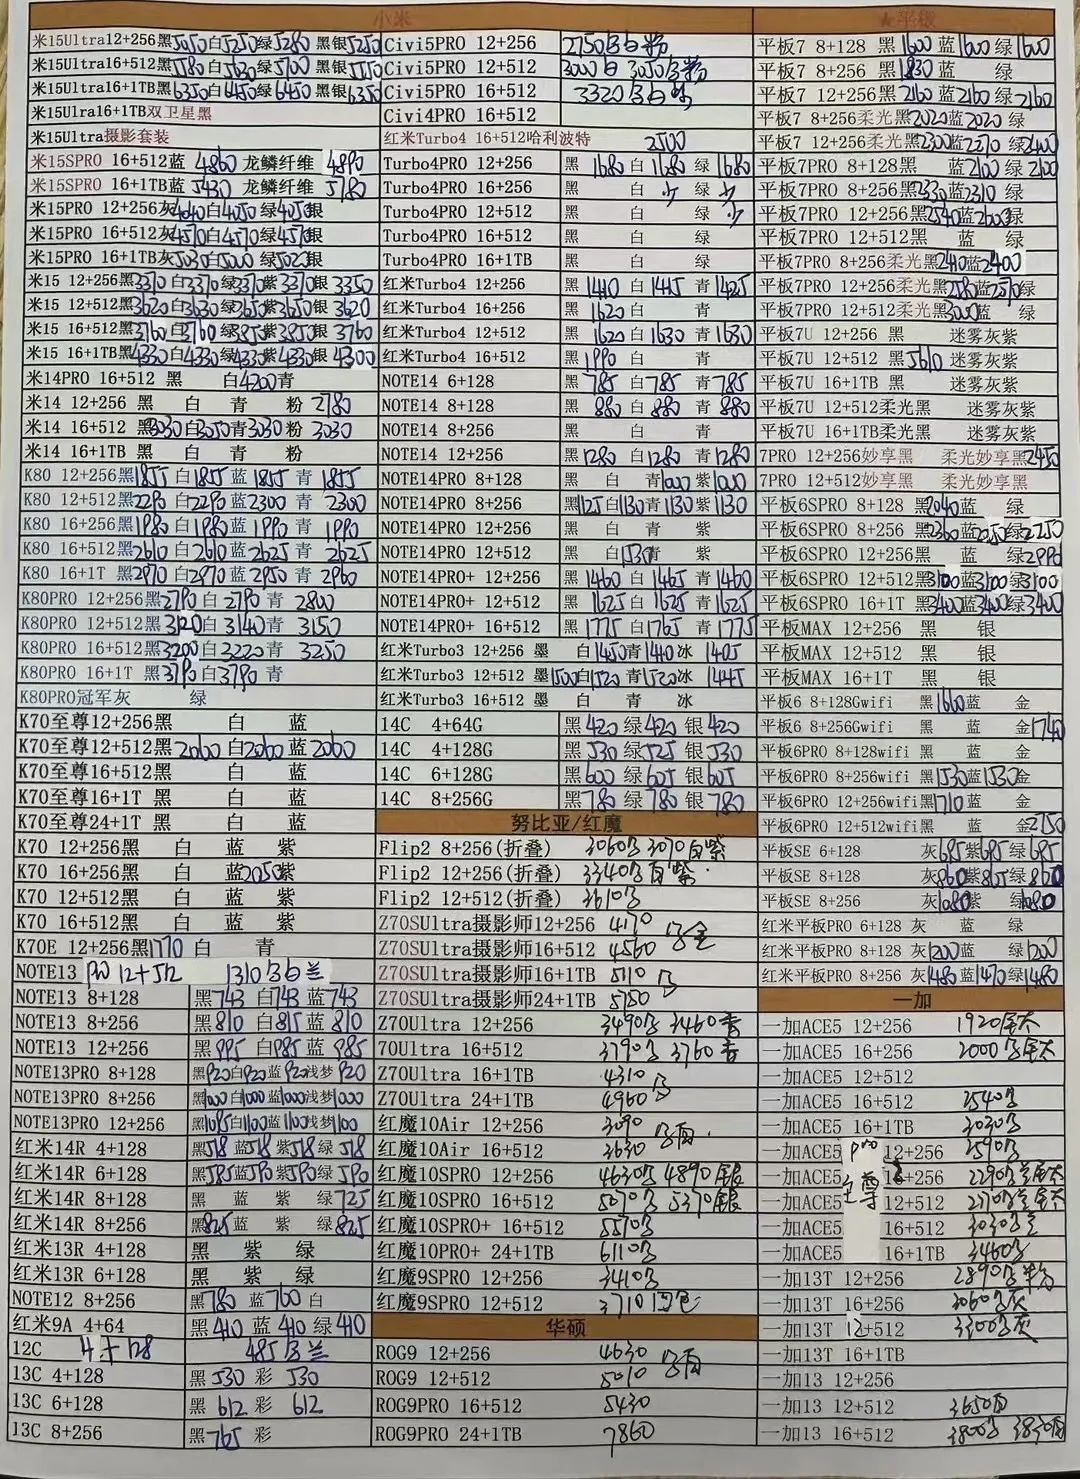 小米
米15Ultra12+256黑5050白5250绿5280 黑银5250
米15Ultra16+512黑5580白5630绿5700 黑银5550
米15Ultra16+1TB黑6350白6450绿6450 黑银6350
米15Ulra16+1TB双卫星黑
米15Ultra摄影套装
米15SPRO 16+512蓝 4860 龙鳞纤维 4890
米15SPRO 16+1TB蓝 5430 龙鳞纤维 5780
米15PRO 12+256灰4040白4050 绿4050银
米15PRO 16+512灰4570白4570绿4570银
米15PRO 16+1TB灰5030白5000 绿5020银
米15 12+256黑3370白3370绿3370紫3370银 3350
米15 12+512黑3620白3630绿3650紫3650银 3620
米15 16+512黑3760白3760 绿3850紫3850银 3760
米15 16+1TB黑4330白4330绿4330紫4330银 4300
米14PRO 16+512 黑 白4200青
米14 12+256 黑 白 青 粉 2780
米14 16+512 黑3030白3050青3030 粉 3030
米14 16+1TB 黑 白 青 粉
K80 12+256黑1855 白1855 蓝 1855 青 1855
K80 12+512黑2290 白2290蓝2300 青 2300
K80 16+256黑1980 白1980蓝1990 青 1990
K80 16+512黑2610 白2610蓝2625 青 2625
K80 16+1T 黑2970 白2970蓝2950 青 2960
K80PRO 12+256黑2790白 2790青 2800
K80PRO 12+512黑3120白 3140青 3150
K80PRO 16+512黑3200白3220青 3250
K80PRO 16+1T 黑3790白3790青
K80PRO冠军灰 绿
K70至尊12+256黑 白 蓝
K70至尊12+512黑2060 白2060 蓝2060
K70至尊16+512黑 白 蓝
K70至尊16+1T 黑 白 蓝
K70至尊24+1T 黑 白 蓝
K70 12+256黑 白 蓝 紫
K70 16+256黑 白 蓝2050紫
K70 12+512黑 白 蓝 紫
K70 16+512黑 白 蓝 紫
K70E 12+256黑1770 白 青
NOTE13 Pro 12+512 1310黑白兰
NOTE13 8+128 黑743 白743 蓝743
NOTE13 8+256 黑810 白815 蓝 810
NOTE13 12+256 黑995 白985 蓝 985
NOTE13PRO 8+128 黑920白920 蓝 920浅梦 920
NOTE13PRO 8+256 黑1000白1000蓝1000浅梦 1000
NOTE13PRO 12+256 黑1085白1100蓝1100浅梦1100
红米14R 4+128 黑518 蓝518 紫518 绿 518
红米14R 6+128 黑585蓝590 紫590绿 590
红米14R 8+128 黑 蓝 紫 绿725
红米14R 8+256 黑825 蓝 紫 绿825
红米13R 4+128 黑 紫 绿
红米13R 6+128 黑 紫 绿
NOTE12 8+256 黑780 蓝760 白
红米9A 4+64 黑 410 蓝 410 绿 410
12C 4+128 485黑兰
13C 4+128 黑 530 彩 530
13C 6+128 黑 612 彩 612
13C 8+256 黑765 彩
Civi5PRO 12+256 2750黑白粉
Civi5PRO 12+512 3000白 3050黑粉
Civi5PRO 16+512 3320黑白粉
Civi4PRO 16+512
红米Turbo4 16+512哈利波特 2500
Turbo4PRO 12+256 黑 1680 白 1680 绿 1680
Turbo4PRO 16+256 黑 白 少 绿 少
Turbo4PRO 12+512 黑 白 绿 少
Turbo4PRO 16+512 黑 白 绿
Turbo4PRO 16+1TB 黑 白 绿
红米Turbo4 12+256 黑 1410 白 1415 青 1425
红米Turbo4 16+256 黑1620白 青
红米Turbo4 12+512 黑 1620 白 1630 青 1630
红米Turbo4 16+512 黑1990 白 青
NOTE14 6+128 黑 785 白785 青 785
NOTE14 8+128 黑 880 白 880 青 880
NOTE14 8+256 黑 白 青
NOTE14 12+256 黑1280 白1280 青 1280
NOTE14PRO 8+128 黑 白 青1000紫1000
NOTE14PRO 8+256 黑1125白1130青1130紫1130
NOTE14PRO 12+256 黑 白 青 紫
NOTE14PRO 12+512 黑 白1530青 紫
NOTE14PRO+ 12+256 黑 1460 白 1465 青 1460
NOTE14PRO+ 12+512 黑 1625 白 1625 青 1625
NOTE14PRO+ 16+512 黑 1775 白1765 青 1775
红米Turbo3 12+256 墨 白1450青1410冰 1405
红米Turbo3 12+512 墨1500白1520 青1520冰 1445
红米Turbo3 16+512 墨 白 青 冰
14C 4+64G 黑420 绿420 银 420
14C 4+128G 黑530 绿525 银530
14C 6+128G 黑600 绿605 银605
14C 8+256G 黑780 绿 780 银 780
努比亚/红魔
Flip2 8+256(折叠) 3060黑 3070白紫
Flip2 12+256(折叠) 3340黑白紫
Flip2 12+512(折叠) 3610黑
Z70SUltra摄影师12+256 4170
Z70SUltra摄影师16+512 4560 黑金
Z70SUltra摄影师16+1TB 5110
Z70SUltra摄影师24+1TB 5750 黑
Z70Ultra 12+256 3490黑 3460青
70Ultra 16+512 3790黑 3760青
Z70Ultra 16+1TB 4310
Z70Ultra 24+1TB 4960 黑
红魔10Air 12+256 3090
红魔10Air 16+512 3630 黑白
红魔10SPRO 12+256 4630黑 4890银
红魔10SPRO 16+512 5070黑 5370银
红魔10SPRO+ 16+512 5570黑
红魔10PRO+ 24+1TB 6110黑
红魔9SPRO 12+256 3410黑
红魔9SPRO 12+512 3710四色
华硕
ROG9 12+256 4630
ROG9 12+512 5010 黑白
ROG9PRO 16+512 5430
ROG9PRO 24+1TB 7860
★平板
平板7 8+128 黑 1600 蓝 1600 绿1600
平板7 8+256 黑 1830 蓝 绿
平板7 12+256黑2160 蓝2160 绿2160
平板7 8+256柔光黑2020蓝2020 绿
平板7 12+256柔光黑2300蓝2270 绿2400
平板7PRO 8+128黑 蓝2100 绿2100
平板7PRO 8+256黑2330蓝2310 绿
平板7PRO 12+256黑2540蓝2600绿
平板7PRO 12+512黑 蓝 绿
平板7PRO 8+256柔光黑2410蓝2400
平板7PRO 12+256柔光黑2580蓝2570绿
平板7PRO 12+512柔光黑3000蓝 绿
平板7U 12+256 黑 迷雾灰紫
平板7U 12+512 黑5610 迷雾灰紫
平板7U 16+1TB 黑 迷雾灰紫
平板7U 12+512柔光黑 迷雾灰紫
平板7U 16+1TB柔光黑 迷雾灰紫
7PRO 12+256妙享黑 柔光妙享黑2450
7PRO 12+512妙享黑 柔光妙享黑
平板6SPRO 8+128 黑2040蓝 绿
平板6SPRO 8+256 黑2360蓝2250绿2250
平板6SPRO 12+256黑 蓝 绿2990
平板6SPRO 12+512黑3100蓝3100绿3100
平板6SPRO 16+1T 黑3400蓝3400绿3400
平板MAX 12+256 黑 银
平板MAX 12+512 黑 银
平板MAX 16+1T 黑 银
平板6 8+128Gwifi 黑1660蓝 金
平板6 8+256Gwifi 黑 蓝 金1740
平板6PRO 8+128wifi 黑 蓝 金
平板6PRO 8+256wifi 黑1530蓝1530金
平板6PRO 12+256wifi黑1710蓝 金
平板6PRO 12+512wifi黑 蓝 金2150
平板SE 6+128 灰685紫685 绿 685
平板SE 8+128 灰860紫865绿 860
平板SE 8+256 灰1080紫 绿1080
红米平板PRO 6+128 灰 蓝 绿
红米平板PRO 8+128 灰1200蓝 绿1200
红米平板PRO 8+256 灰1480蓝1470绿1480
一加
一加ACE5 12+256 1920全太
一加ACE5 16+256 2000黑全太
一加ACE5 12+512
一加ACE5 16+512 2540黑
一加ACE5 16+1TB 3030黑
一加ACE5 Pro 12+256 2590黑
一加ACE5 至尊 16+256 2290黑全太
一加ACE5 12+512 2710黑全太
一加ACE5 16+512 3030黑
一加ACE5 16+1TB 3460黑
一加13T 12+256 2890黑粉
一加13T 16+256 3060黑灰
一加13T 12+512 3300黑灰
一加13T 16+1TB
一加13 12+256
一加13 12+512 3650白
一加13 16+512 3800黑 3830白